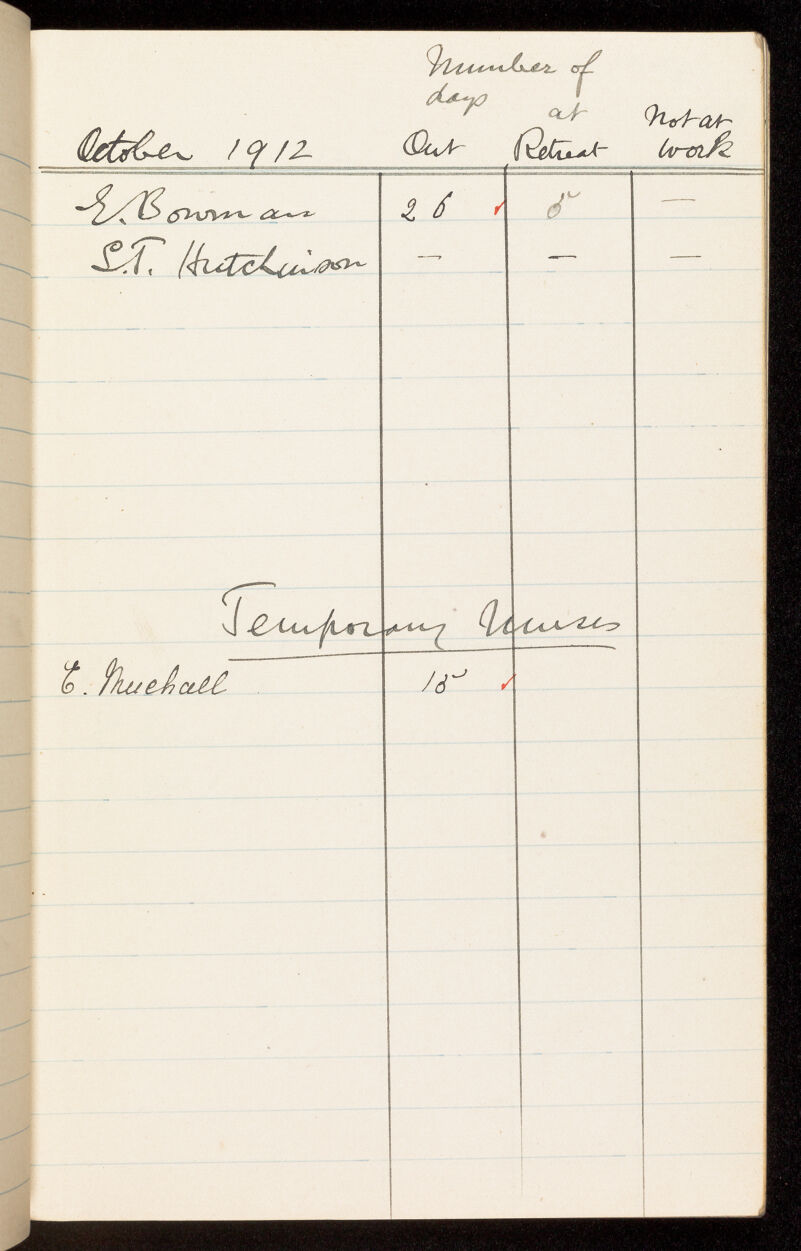 Number of
days
October 1912 Out at Retreat Not at work
E. Bowman 26 ✓ 5 —
S.T. Hutchinson — — —
Temporary Nurses
E. Muchall 15 ✓